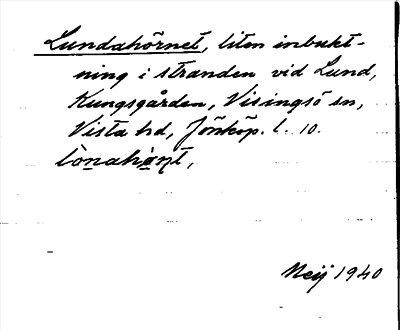 Lundahörnet, liten inbukt-
ning i stranden vid Lund,
Kungsgården, Visingsö sn,
Vista hd, Jönköp. l. 10.
Neij 1940